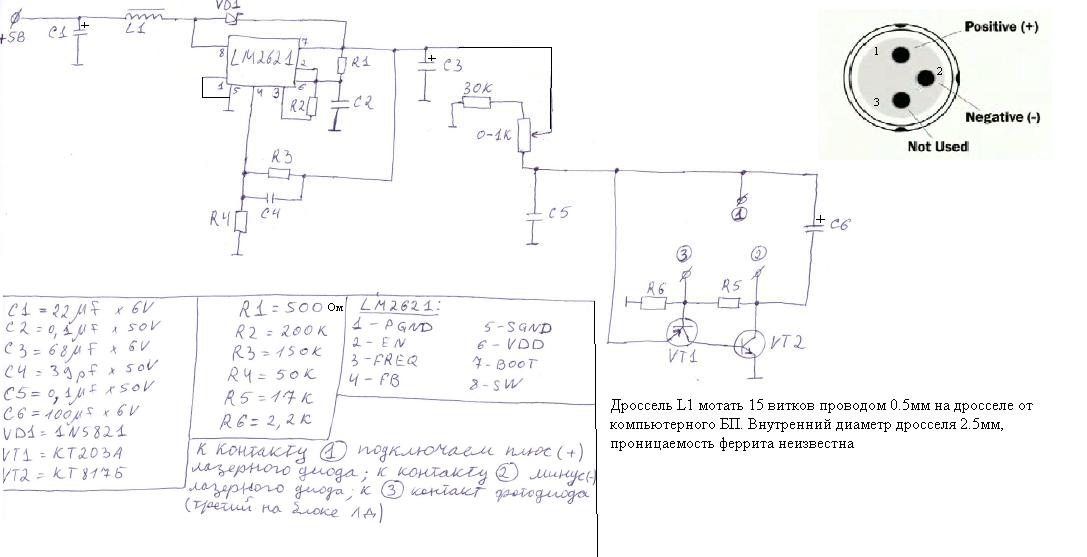 +5В
C1
+
L1
VD1
LM2621
8
7
2
6
1
5
4
3
R1
R2
C2
+
C3
30K
0-1K
R3
C4
R4
C5
1
3
2
R6
R5
+
C6
VT1
VT2
1
2
3
Positive (+)
Negative (-)
Not Used
C1 = 22μf x 6V
C2 = 0,1μf x 50V
C3 = 68μf x 6V
C4 = 39pf x 50V
C5 = 0,1μf x 50V
C6 = 100μf x 6V
VD1 = 1N5821
VT1 = KT203A
VT2 = KT817Б
R1 = 500 Ом
R2 = 200K
R3 = 150K
R4 = 50K
R5 = 17K
R6 = 2,2K
LM2621:
1 - PGND
2 - EN
3 - FREQ
4 - FB
5 - SGND
6 - VDD
7 - BOOT
8 - SW
К контакту 1 подключаем плюс (+)
лазерного диода; к контакту 2 минус(-)
лазерного диода; к 3 контакт фотодиода
(третий на блоке ЛД)
Дроссель L1 мотать 15 витков проводом 0.5мм на дросселе от
компьютерного БП. Внутренний диаметр дросселя 2.5мм,
проницаемость феррита неизвестна